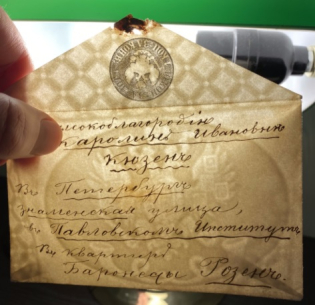 Высокоблагородію
Каролинѣ Ивановнѣ
Кюзенъ
Въ Петербургъ
знаменская улица,
въ Павловскомъ Институтѣ
Въ квартирѣ
Баронессы Розенъ.